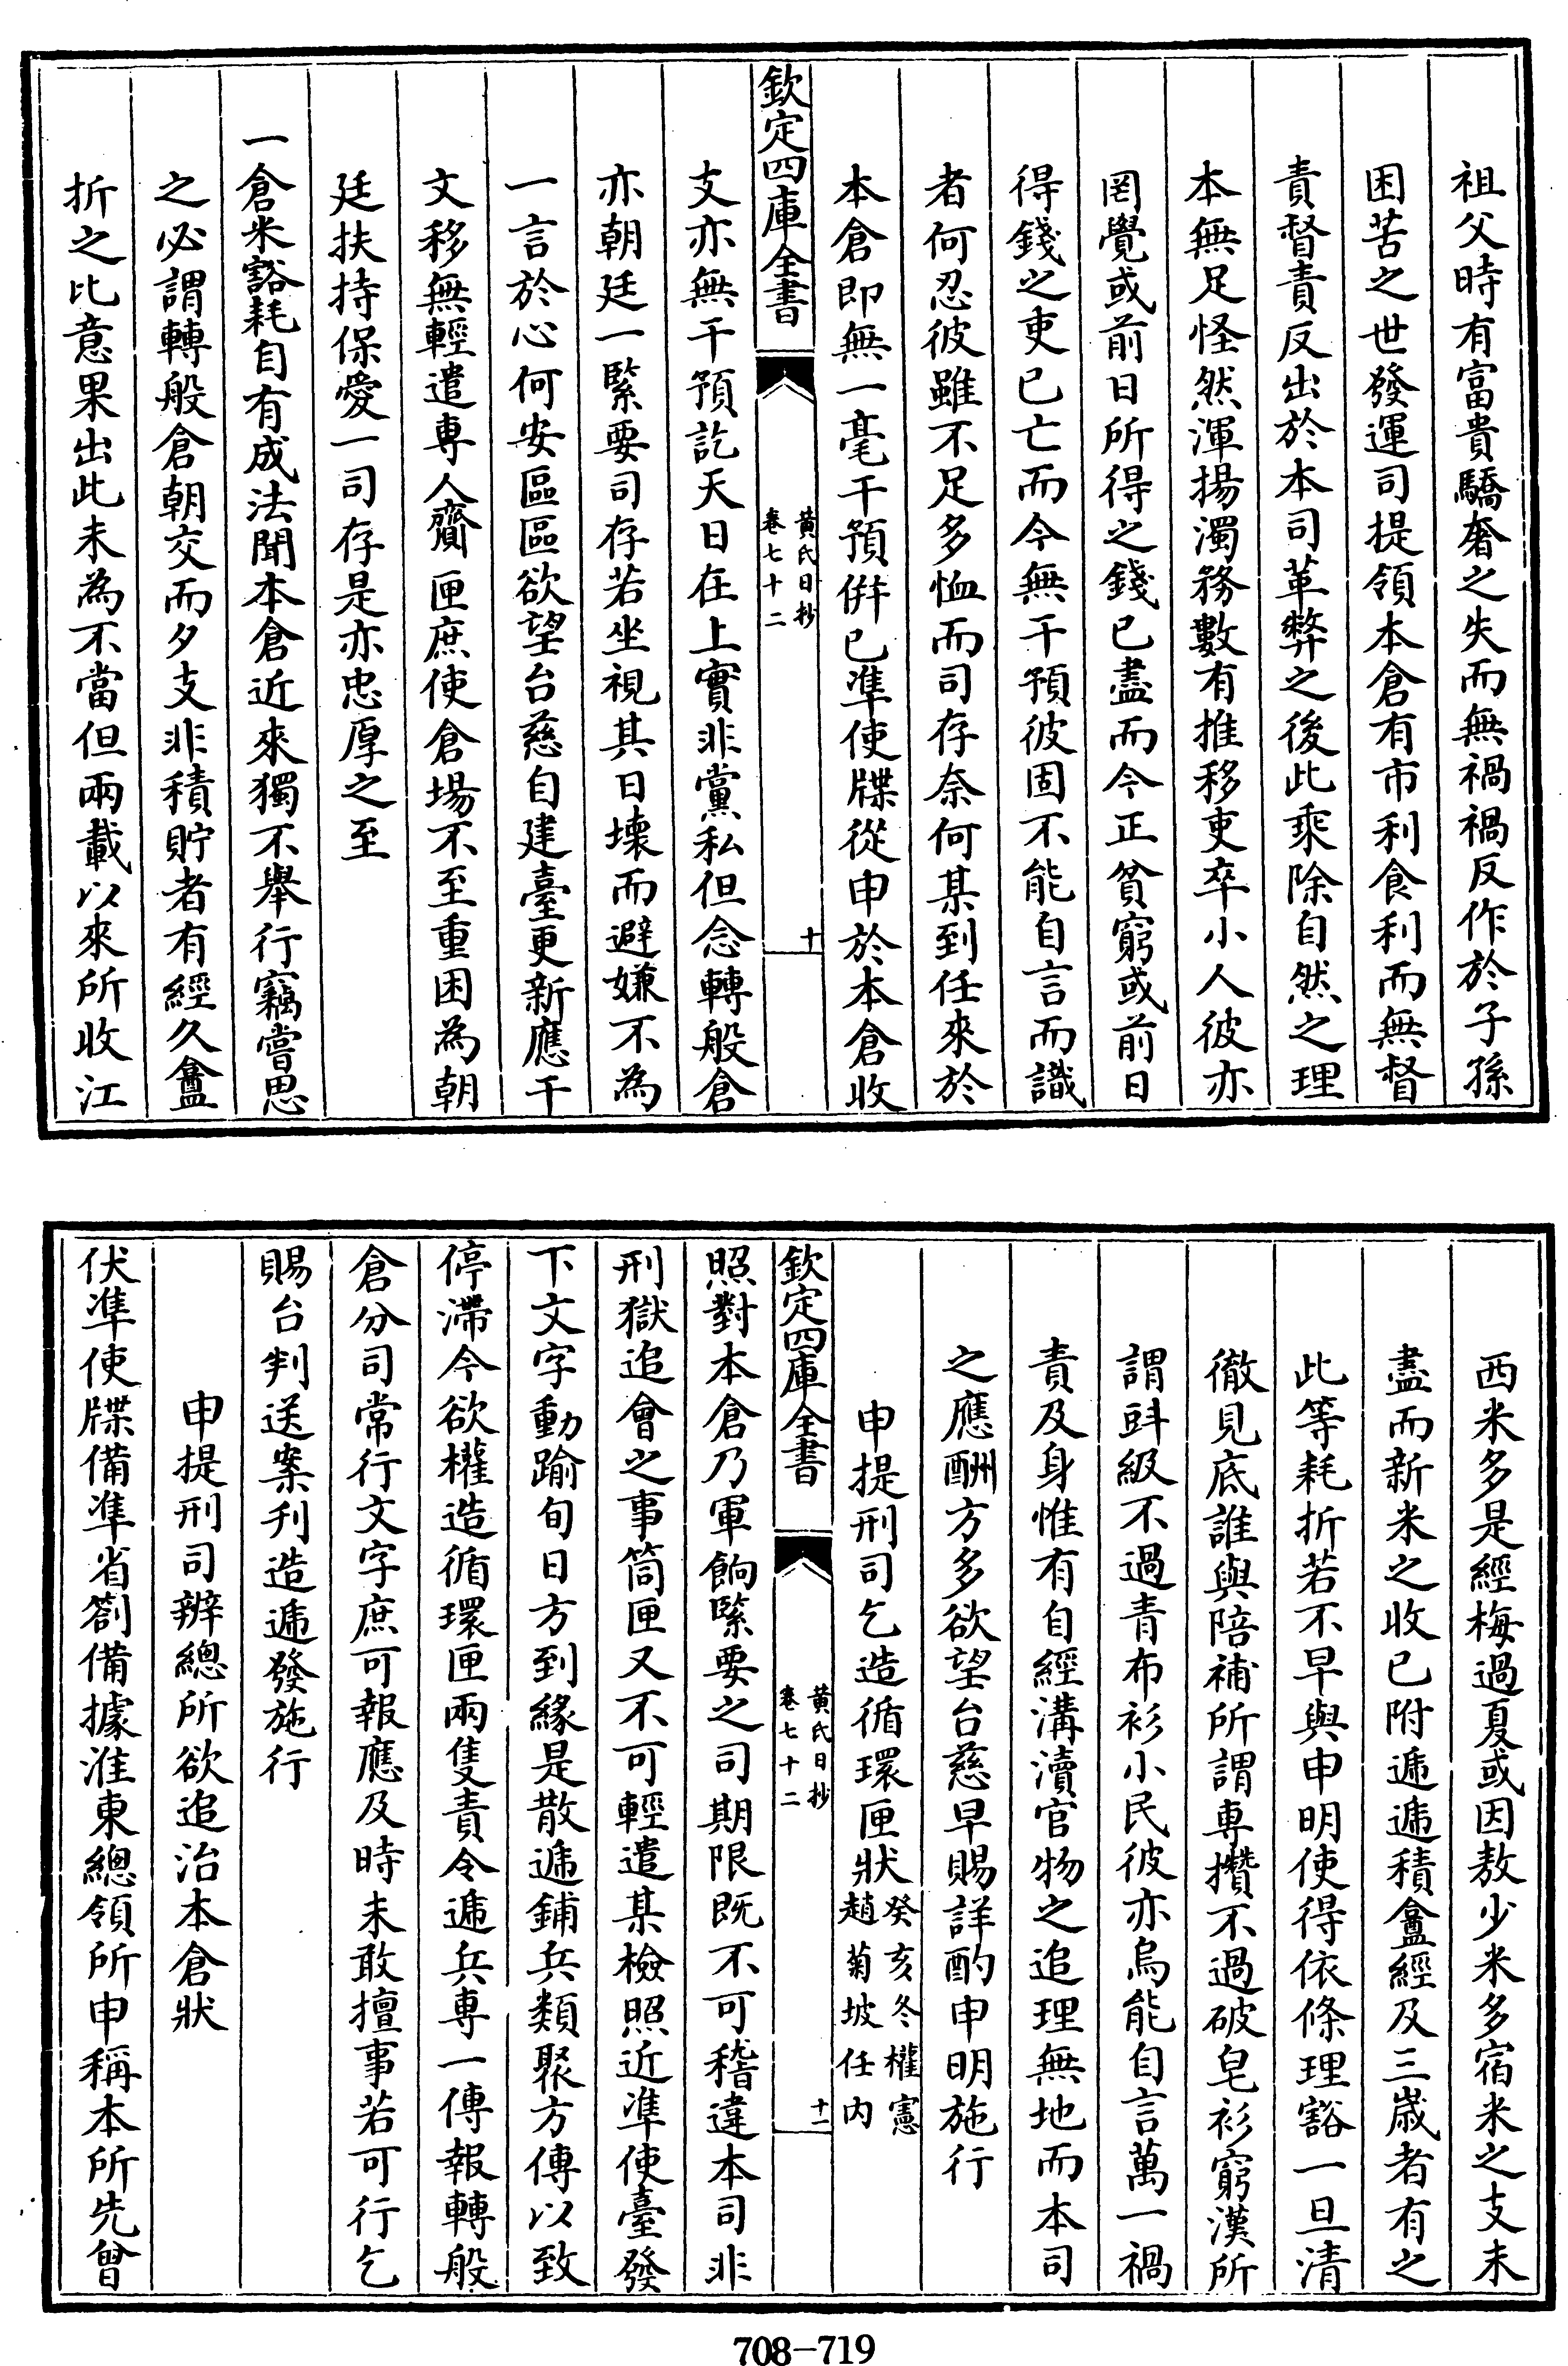 祖父時有富貴驕奢之失而無禍禍反作於子孫
困苦之世發運司提領本倉有市利食利而無督
責督責反出於本司革弊之後此乘除自然之理
本無足怪然渾揚濁務數有推移吏卒小人彼亦
罔覺或前日所得之錢已盡而今正貧窮或前日
得錢之吏已亡而今無干預彼固不能自言而識
者何忍彼雖不足多恤而司存奈何某到任來於
本倉即無一毫干預併已準使牒從申於本倉收
欽定四庫全書
黃氏日抄
卷七十二
十
支亦無干預訖天日在上實非黨私但念轉般倉
亦朝廷一緊要司存若坐視其日壞而避嫌不為
一言於心何安區區欲望台慈自建臺更新應干
文移無輕遣專人齎匣庶使倉場不至重困為朝
廷扶持保愛一司存是亦忠厚之至
一倉米豁耗自有成法聞本倉近來獨不舉行竊嘗思
之必謂轉般倉朝交而夕支非積貯者有經久盦
折之比意果出此未為不當但兩載以來所收江
西米多是經梅過夏或因敖少米多宿米之支未
盡而新米之收已附遞遞積盦經及三歲者有之
此等耗折若不早與申明使得依條理豁一旦清
徹見底誰與陪補所謂專攢不過破皂衫窮漢所
謂㪷級不過青布衫小民彼亦烏能自言萬一禍
責及身惟有自經溝瀆官物之追理無地而本司
之應酬方多欲望台慈早賜詳酌申明施行
申提刑司乞造循環匣狀癸亥冬權憲
趙菊坡任內
欽定四庫全書
黃氏日抄
卷七十二
十一
照對本倉乃軍餉緊要之司期限既不可稽違本司非
刑獄追會之事筒匣又不可輕遣某檢照近準使臺發
下文字動踰旬日方到緣是散遞鋪兵類聚方傳以致
停滯今欲權造循環匣兩隻責令遞兵專一傳報轉般
倉分司常行文字庶可報應及時未敢擅事若可行乞
賜台判送案刋造遞發施行
申提刑司辨總所欲追治本倉狀
伏準使牒備準省劄備據淮東總領所申稱本所先曾
708-719